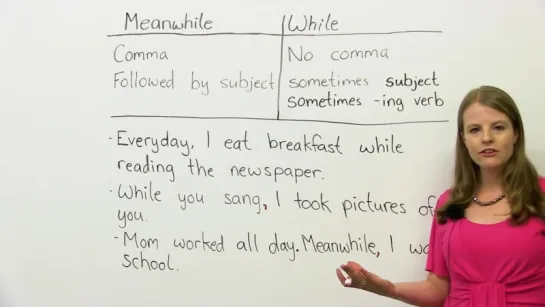 Meanwhile While
Comma No comma
Followed by subject sometimes subject
sometimes -ing verb
- Everyday, I eat breakfast while
reading the newspaper.
- While you sang, I took pictures of
you.
- Mom worked all day. Meanwhile, I
school.